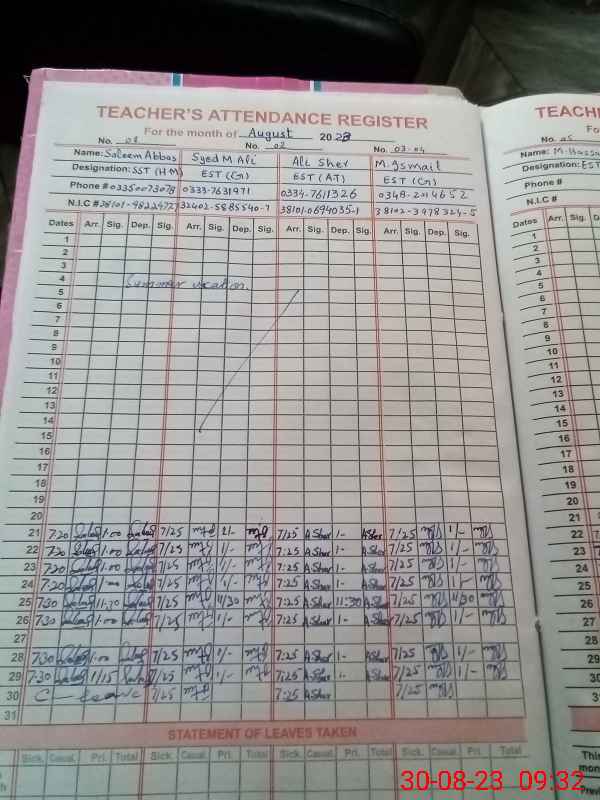 TEACHER'S ATTENDANCE REGISTER
For the month of August 2023
No. 02 No. 03-04
Name: Saleem Abbas Syed M Ali Ali Sher M. Ismail
Designation: SST (HM) EST (Gn) EST (AT) EST (Gn)
Phone # 03350073078 0333-7631971 0334-7611326 0348-2014652
N.I.C # 38101-4822472 32402-5885540-7 38101-0694035-1 38102-3478324-5
Dates Arr. Sig. Dep. Sig. Arr. Sig. Dep. Sig. Arr. Sig. Dep. Sig. Arr. Sig. Dep. Sig.
1
2
3
4 Summer vacation
5
6
7
8
9
10
11
12
13
14
15
16
17
18
19
20
21 7:20 1:00 7/25 1/- 7/25 A Sher 1- A Sher 7/25 1/-
22 7:20 1:00 7/25 1/- 7:25 A Sher 1- A Sher 7/25 1/-
23 7:20 1:00 7/25 1/- 7:25 A Sher 1- A Sher 7/25 1/-
24 7:20 7/25 1/- 7:25 A Sher 1- A Sher 7/25 1/-
25 7:30 11:30 7/25 11/30 7:25 A Sher 11:30 A Sher 7/25 11/30
26 7:30 1:00 7/25 1/- 7:25 A Sher 1- A Sher 7/25 1/-
27
28 7:30 1:00 7/25 1/- 7:25 A Sher 1- A Sher 7/25 1/-
29 7:30 1/15 7/25 1/- 7:25 A Sher 1- A Sher 7/25 1/-
30 C - leave 7/25 7:25 A Sher 7/25
31
STATEMENT OF LEAVES TAKEN
Sick. Casual. Pri. Total Sick. Casual. Pri. Total Sick. Casual. Pri. Total Sick. Casual. Pri. Total
TEACH
For
No. 05
Name: M. Hassa
Designation: EST
Phone #
N.I.C #
Dates Arr. Sig.
1
2
3
4
5
6
7
8
9
10
11
12
13
14
15
16
17
18
19
20
21
22
23
24
25
26
27
28
29
30
31
This
mon
Previ
30-08-23 09:32